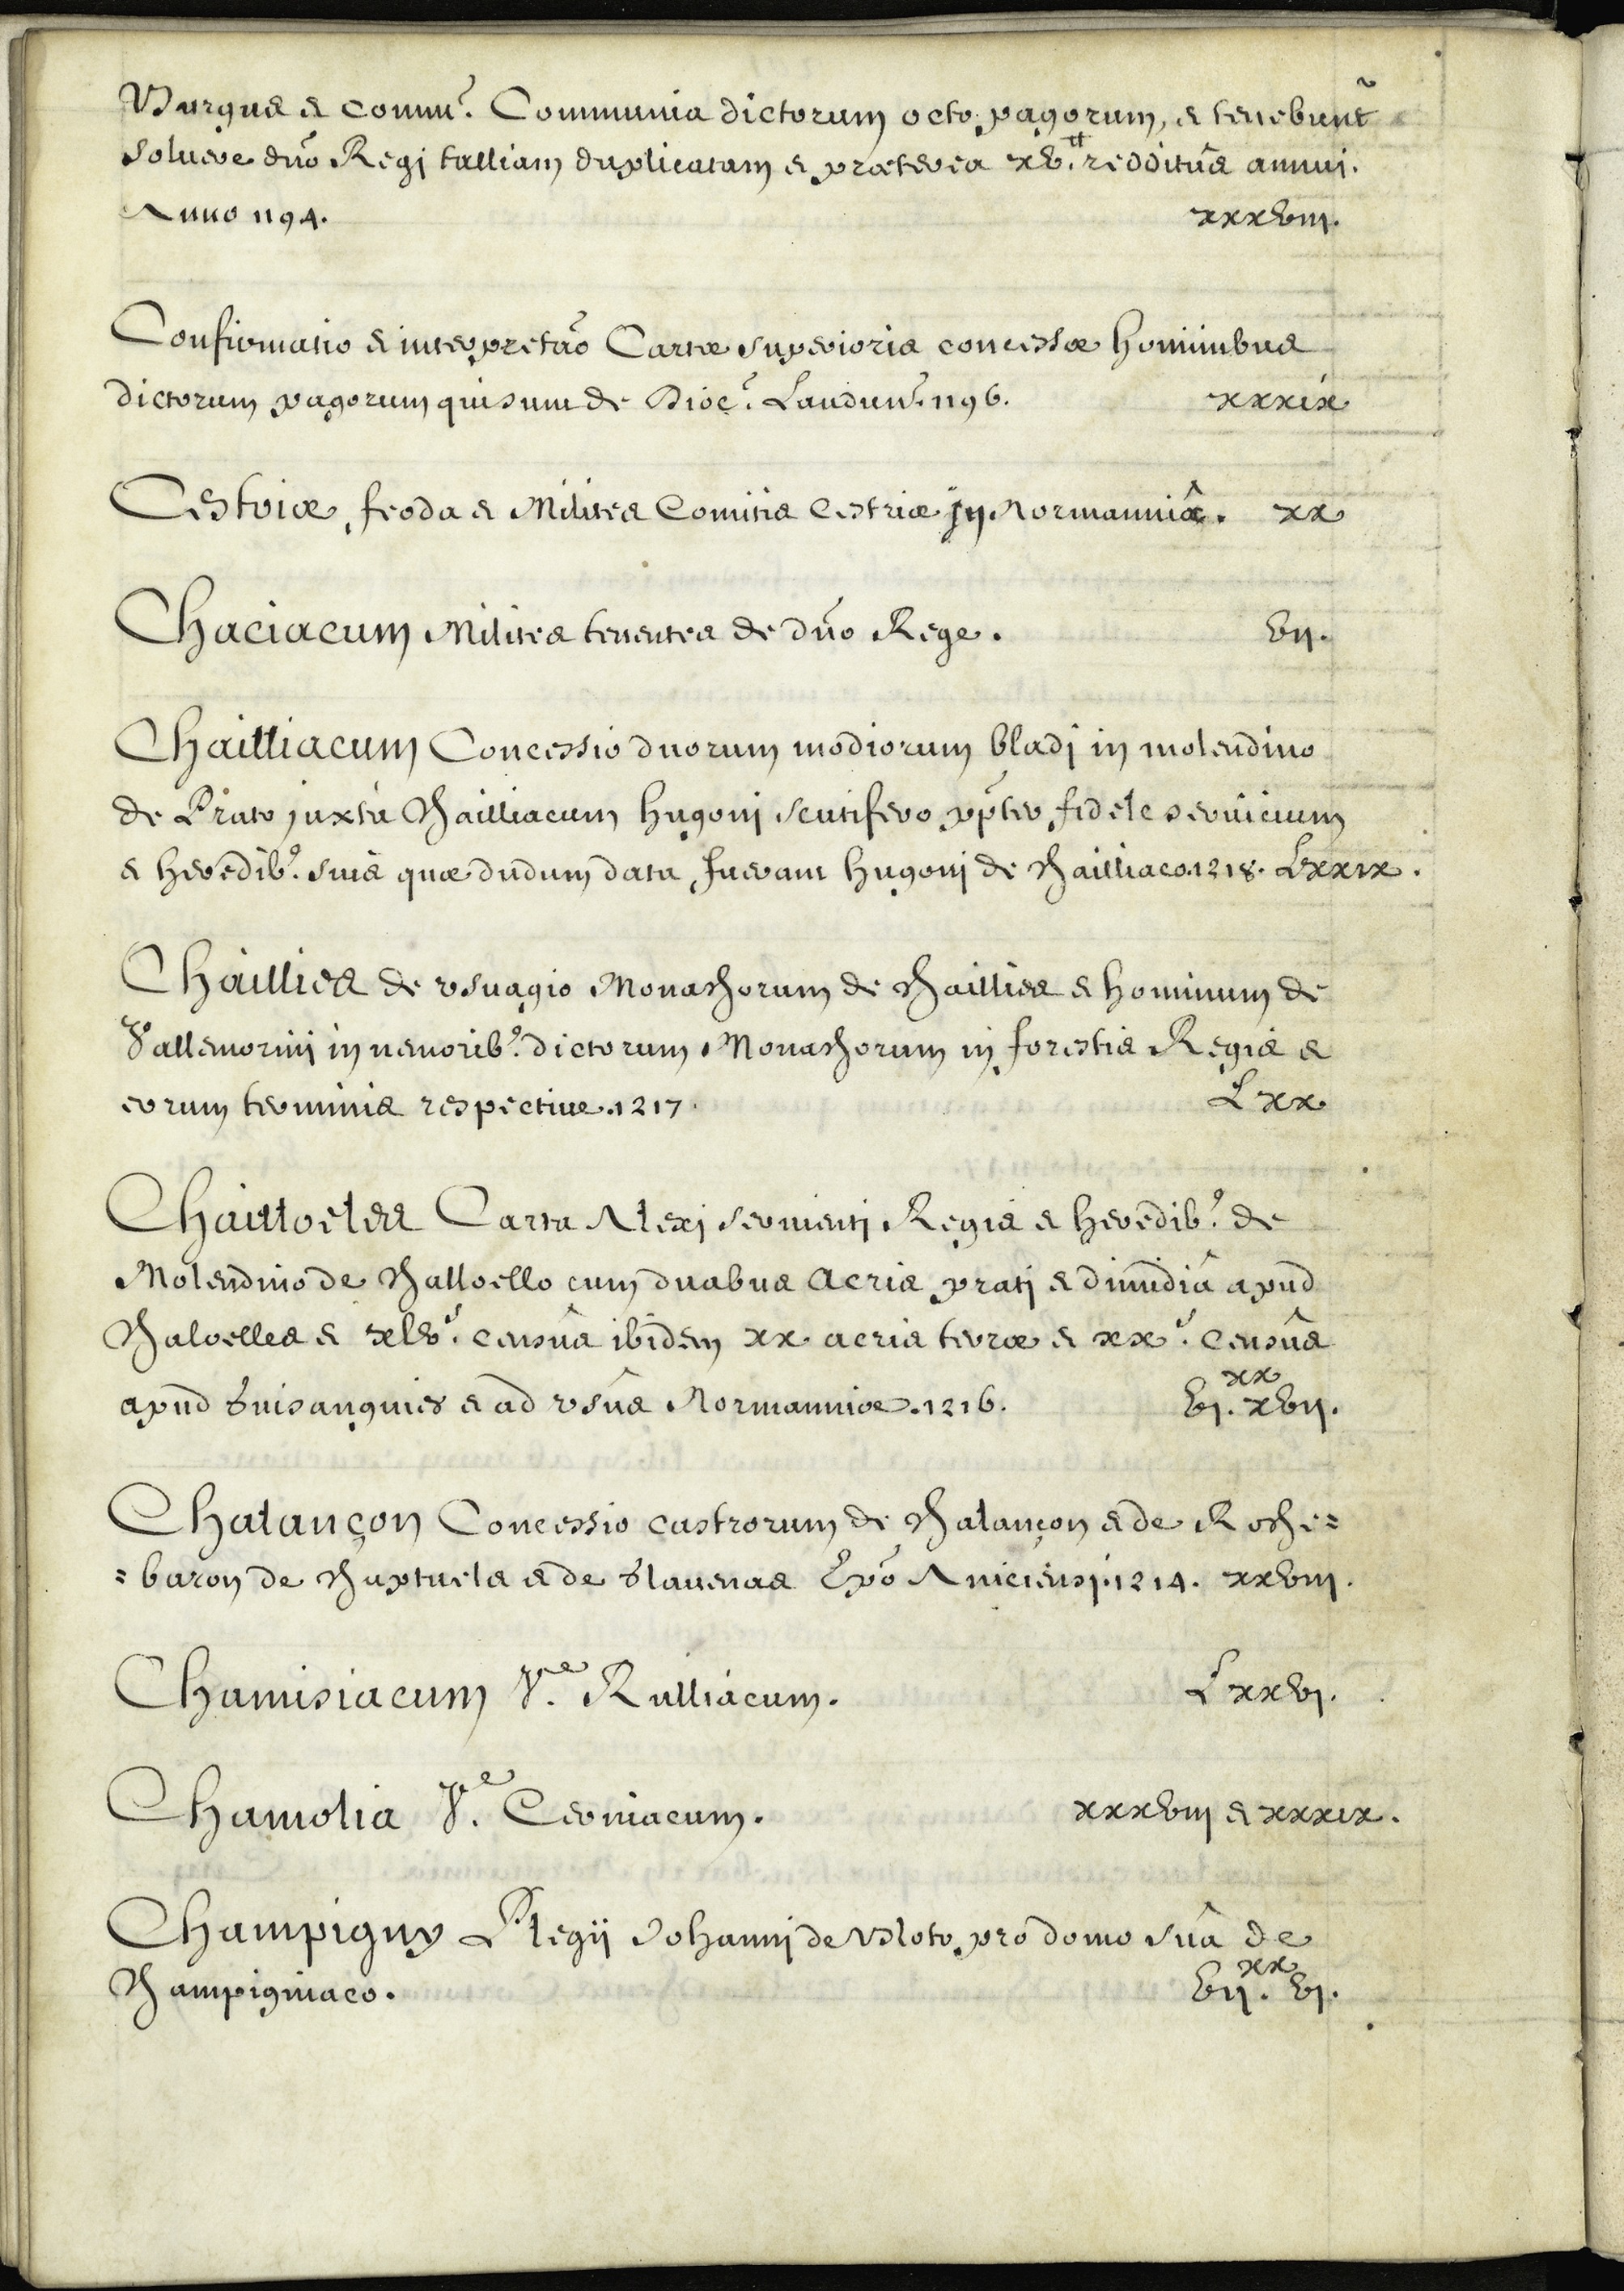 Burgus & commũ. Communia dictorum octo pagorum, & tenebunt̃
solvere dño Regi talliam duplicatam & præterea xv.tt redditûs annui.
Anno 1194. xxxviij.
Confirmatio & interpretaõ Cartæ superioris concessæ hominibus
dictorum pagorum qui sunt de Dioc̃. Laudun̄. 1196. xxxix
Cestriæ, feoda & Milites Comitis Cestriæ in Normanniâ. xx
Chaciacum Milites tenentes de dño Rege. vij.
Chailliacum Concessio duorum modiorum bladi in molendino
de Prato juxtà Chailliacum hugoni scutifero, ppter fidele servicium
& heredib9. suis quæ dudum data fuerant hugoni de Chailliaco. 1218. Lxxix.
Chaillies de vsuagio Monachorum de Chaillies & hominum de
Vallemorini in nemorib9. dictorum Monachorum in forestis Regis &
eorum terminis respective. 1217. Lxx
Chailloeles Carta Alexi servienti Regis & heredib9. de
Molendino de Challoello cum duabus acris prati & dimidiâ apud
Chaloelles & xlvs. censûs ibidem xx acris terræ & xxs. censûs
apud & ad vsûs Normanniæ. 1216. vj.xx xvij.
Chalançon Concessio castrorum de Chalançon & de Roche=
=baron de Chaptuels & de Glavenas Epõ Aniciensi. 1214. xxviij.
Chamisiacum Ve. Rulliacum. Lxxvj.
Chamolia Ve. Cerniacum. xxxviij & xxxix.
Champigny Plegii Johanni de Bloto pro domo suâ de
Champigniaco. vij.xx vj.